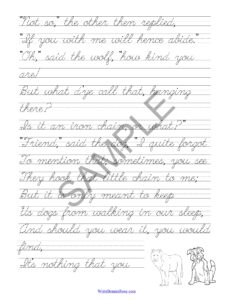 "Not so," the other then replied,
"If you with me will hence abide."
"Oh," said the wolf, "how kind you
are!
But what d'ye call that, hanging
there?
Is it an iron chain, or what?"
"Friend," said the dog, "I quite forgot
To mention that; sometimes, you see
They hook that little chain to me;
But it is only meant to keep
Us dogs from walking in our sleep,
And should you wear it, you would
find,
It's nothing that you
SAMPLE